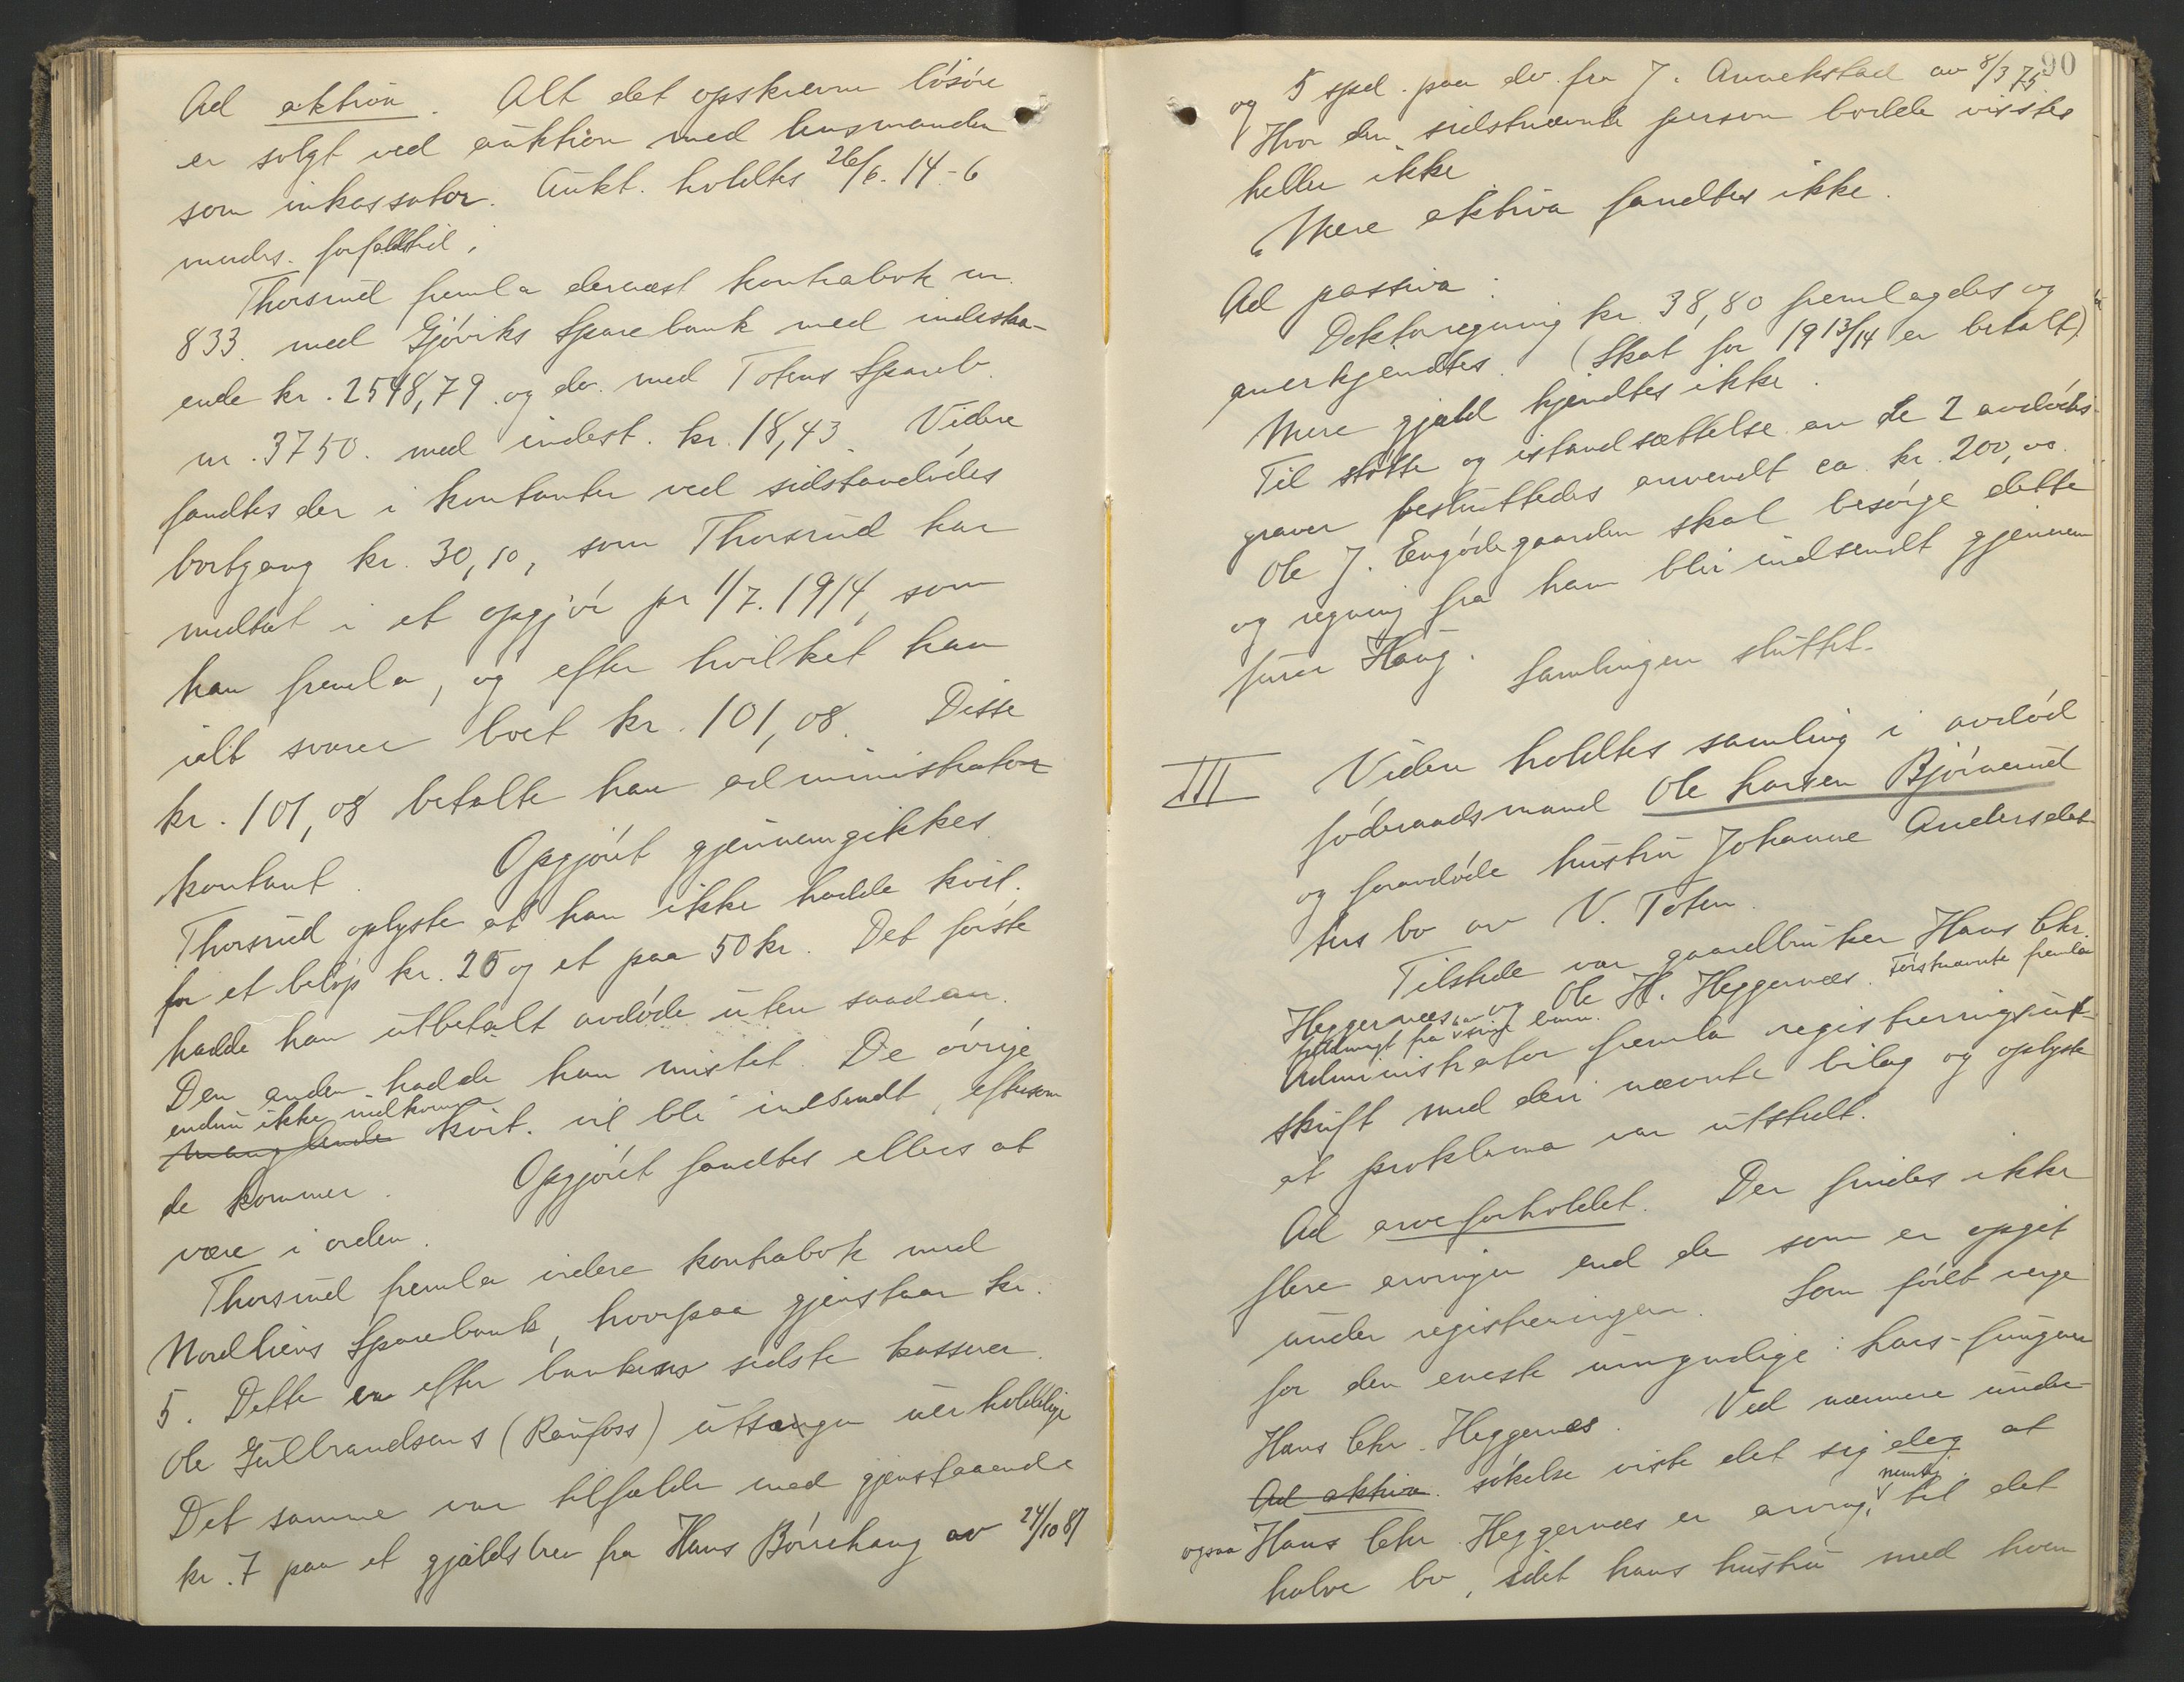 Ad aktiva. Alt det opskrevne lösöre
er solgt ved auktion med lensmanden
som inkassator. Aukt. holdtes 26/6. 14 - 6
mndrs. forfaldstid.
Thorsrud fremla dernæst kontrabok nr.
833 med Gjöviks Sparebank med indestaa-
ende kr. 2548,79 og do. med Totens Spareb.
nr. 3750. med indest. kr. 18,43. Videre
fandtes der i kontanter ved sidstavdödes
bortgang kr. 30,10, som Thorsrud har
medtat i et opgjör pr 1/7. 1914, som
han fremla, og efter hvilket han
ialt svarer boet kr. 101,08. Disse
kr. 101,08 betalte han administrator
kontant. Opgjöret gjennemgikkes.
Thorsrud oplyste at han ikke hadde kvit.
for et belöp kr. 25 og et paa 50 kr. Det förste
hadde han utbetalt avdöde uten saadan.
Den anden hadde han mistet. De övrige
endnu ikke indkomne
manglende kvit. vil bli indsendt, eftersom
de kommer. Opgjöret fandtes ellers at
være i orden.
Thorsrud fremla videre kontrabok med
Nordliens Sparebank, hvorpaa gjenstaar kr.
5. Dette er efter bankens sidste kasserer
Ole Gulbrandsens (Raufoss) utsagn uerholdelige
Det samme var tilfælde med gjenstaaende
kr. 7 paa et gjældsbrev fra Hans Börrehaug av 24/10 87
90
og 5 spd. paa do. fra J. Annekstad av 8/3 75
Hvor den sidstnævnte person bodde visstes
heller ikke
Mere aktiva fandtes ikke.
Ad passiva:
Doktorregning kr. 38,80 fremlagdes og
anerkjendtes. (Skat for 1913/14 er betalt)
Mere gjæld kjendtes ikke.
Til stötte og istandsættelse av de 2 avdödes
graver besluttedes anvendt ca. kr. 200,00.
Ole J. Engödegaarden skal besörge dette
og regning fra ham blir indsendt gjennem
furer Haug.
Samlingen sluttet.
III Videre holdtes samling i avdöd
föderaadsmand Ole Larsen Björnerud
og foravdöde hustru Johanne Andersdat-
ters bo av V. Toten.
Tilstede var gaardbruker Hans Chr.
Heggernæs og Ole H. Heggernæs. Förstnævnte fremla
fuldmagt fra sine barn.
Administrator fremla registreringsut-
skrift med deri nævnte bilag og oplyste
at proklama var utstedt.
Ad arveforholdet. Der findes ikke
flere arvinger end de som er opgit
under registreringen. Som född verge
for den eneste umyndige: Lars fungerer
Hans Chr. Heggernæs. Ved nærmere under-
Ad aktiva. sökelse viste det sig dog at
nemlig
ogsaa Hans Chr Heggernæs er arving, til det
halve bo, idet hans hustru med hvem